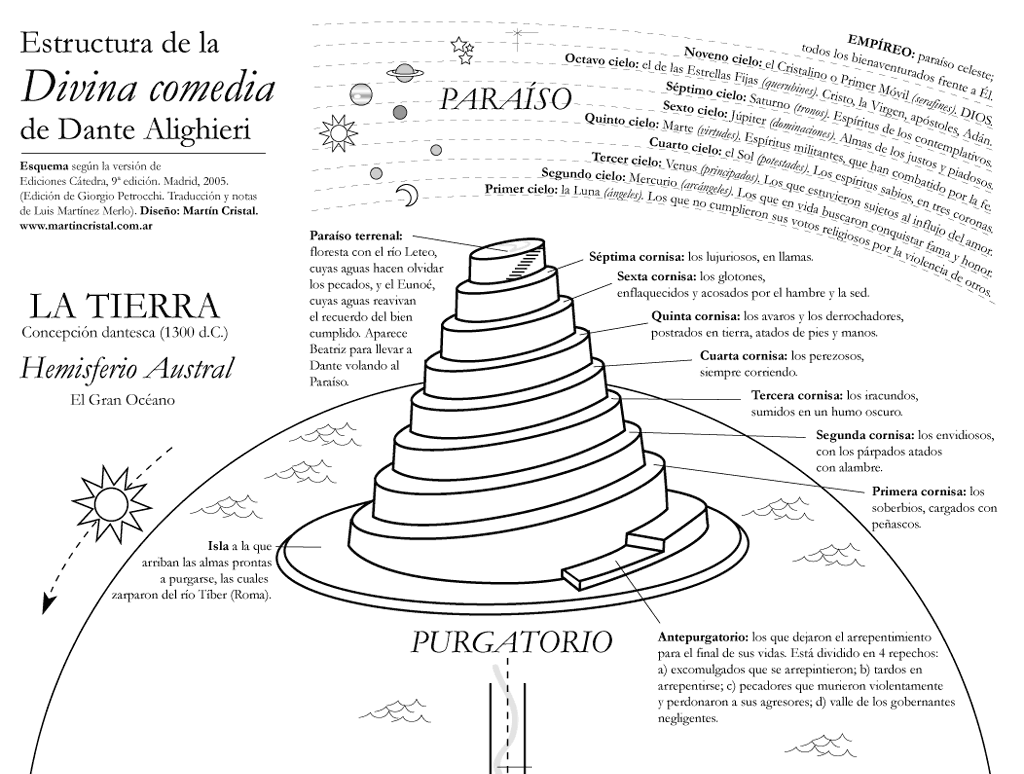 Estructura de la
Divina comedia
de Dante Alighieri
Esquema según la versión de
Ediciones Cátedra, 9ª edición. Madrid, 2005.
(Edición de Giorgio Petrocchi. Traducción y notas
de Luis Martínez Merlo). Diseño: Martín Cristal.
www.martincristal.com.ar
PARAÍSO
EMPÍREO: paraíso celeste;
todos los bienaventurados frente a Él.
Noveno cielo: el Cristalino o Primer Móvil (serafines). DIOS.
Octavo cielo: el de las Estrellas Fijas (querubines). Cristo, la Virgen, apóstoles, Adán.
Séptimo cielo: Saturno (tronos). Espíritus de los contemplativos.
Sexto cielo: Júpiter (dominaciones). Almas de los justos y piadosos.
Quinto cielo: Marte (virtudes). Espíritus militantes, que han combatido por la fe.
Cuarto cielo: el Sol (potestades). Los espíritus sabios, en tres coronas.
Tercer cielo: Venus (principados). Los que estuvieron sujetos al influjo del amor.
Segundo cielo: Mercurio (arcángeles). Los que en vida buscaron conquistar fama y honor.
Primer cielo: la Luna (ángeles). Los que no cumplieron sus votos religiosos por la violencia de otros.
LA TIERRA
Concepción dantesca (1300 d.C.)
Hemisferio Austral
El Gran Océano
Paraíso terrenal:
floresta con el río Leteo,
cuyas aguas hacen olvidar
los pecados, y el Eunoé,
cuyas aguas reavivan
el recuerdo del bien
cumplido. Aparece
Beatriz para llevar a
Dante volando al
Paraíso.
Séptima cornisa: los lujuriosos, en llamas.
Sexta cornisa: los glotones,
enflaquecidos y acosados por el hambre y la sed.
Quinta cornisa: los avaros y los derrochadores,
postrados en tierra, atados de pies y manos.
Cuarta cornisa: los perezosos,
siempre corriendo.
Tercera cornisa: los iracundos,
sumidos en un humo oscuro.
Segunda cornisa: los envidiosos,
con los párpados atados
con alambre.
Primera cornisa: los
soberbios, cargados con
peñascos.
Isla a la que
arriban las almas prontas
a purgarse, las cuales
zarparon del río Tíber (Roma).
PURGATORIO
Antepurgatorio: los que dejaron el arrepentimiento
para el final de sus vidas. Está dividido en 4 repechos:
a) excomulgados que se arrepintieron; b) tardos en
arrepentirse; c) pecadores que murieron violentamente
y perdonaron a sus agresores; d) valle de los gobernantes
negligentes.